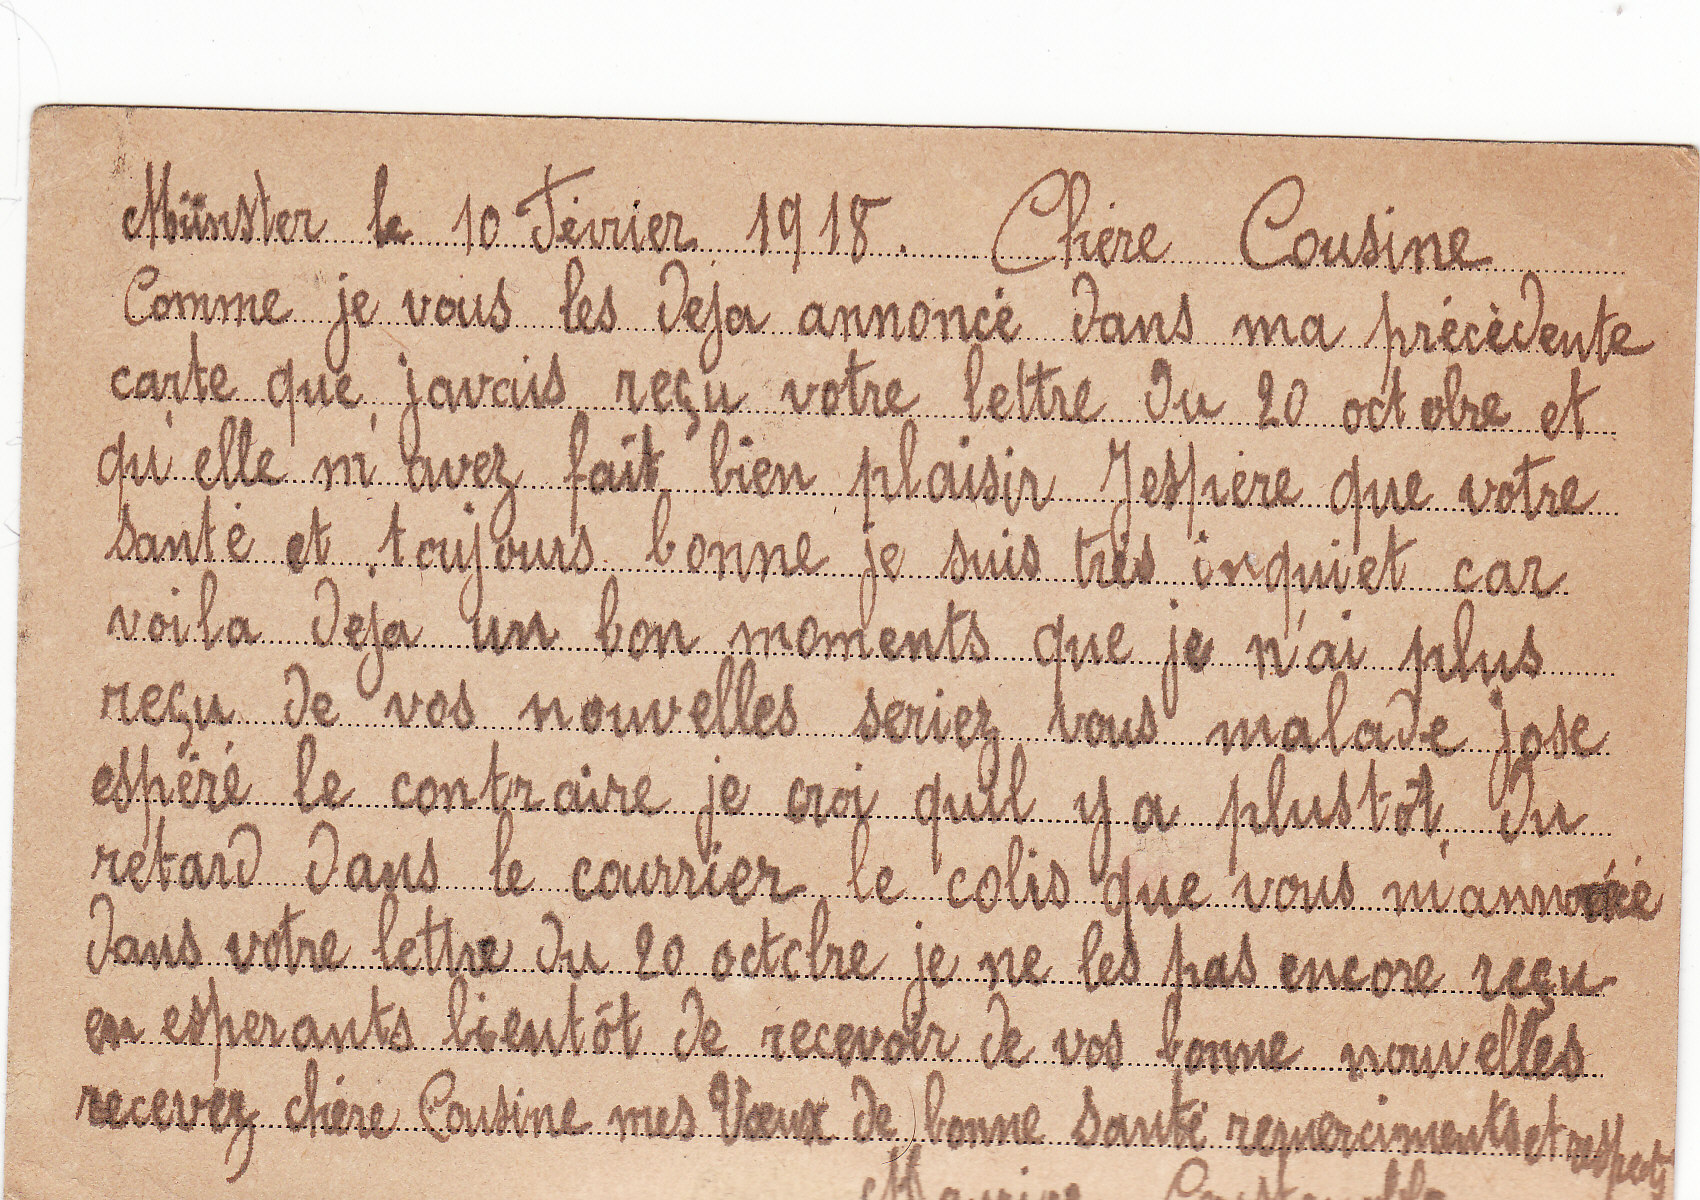 Münster le 10 Février 1918. Chère Cousine
Comme je vous les deja annoncé dans ma précèdente
carte que javais reçu votre lettre du 20 octobre et
qu'elle m'avez fait bien plaisir Jespère que votre
santé et toujours bonne je suis très inquiet car
voila deja un bon moments que je n'ai plus
reçu de vos nouvelles seriez vous malade jose
espéré le contraire je croi quil y a plustôt du
retard dans le courrier le colis que vous m'annoncé
dans votre lettre du 20 octobre je ne les pas encore reçu
en esperants bientôt de recevoir de vos bonne nouvelles
recevez chère Cousine mes Vœux de bonne santé remerciments et respects
Maurice